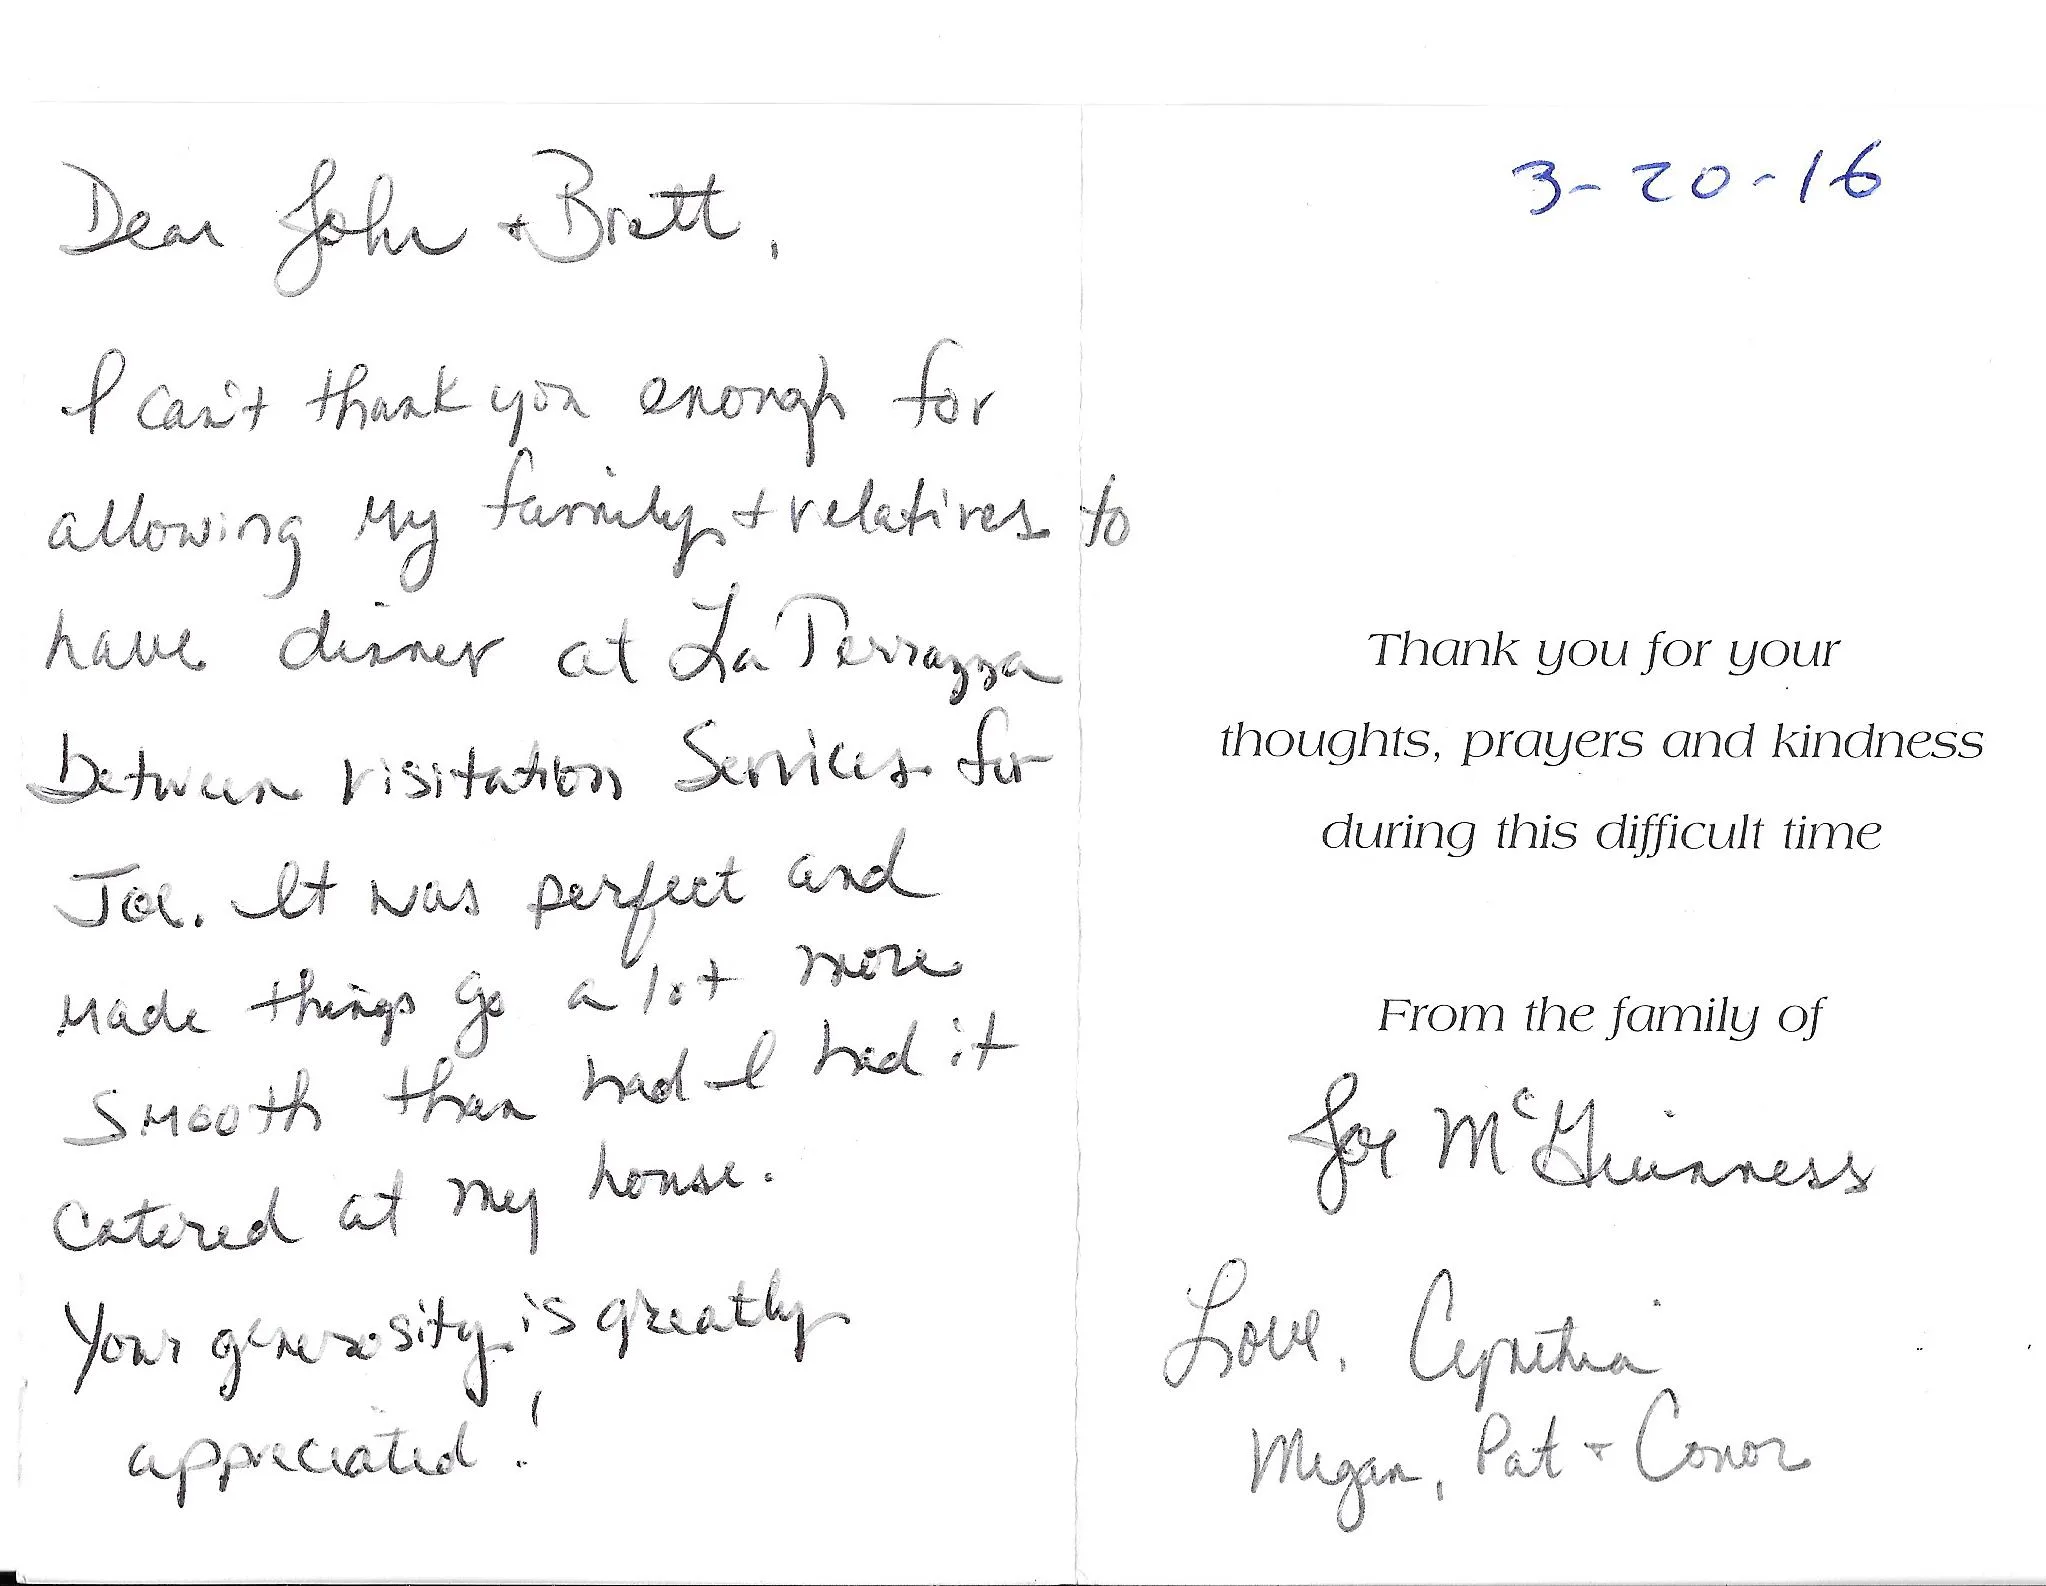 Dear John + Brett,
I can't thank you enough for
allowing my family + relatives to
have dinner at La Terrazza
between visitation services for
Joe. It was perfect and
made things go a lot more
smooth than had I had it
catered at my house.
Your generosity is greatly
appreciated!
3-20-16
Thank you for your
thoughts, prayers and kindness
during this difficult time
From the family of
Joe McGuinness
Love, Cynthia
Megan, Pat + Conor